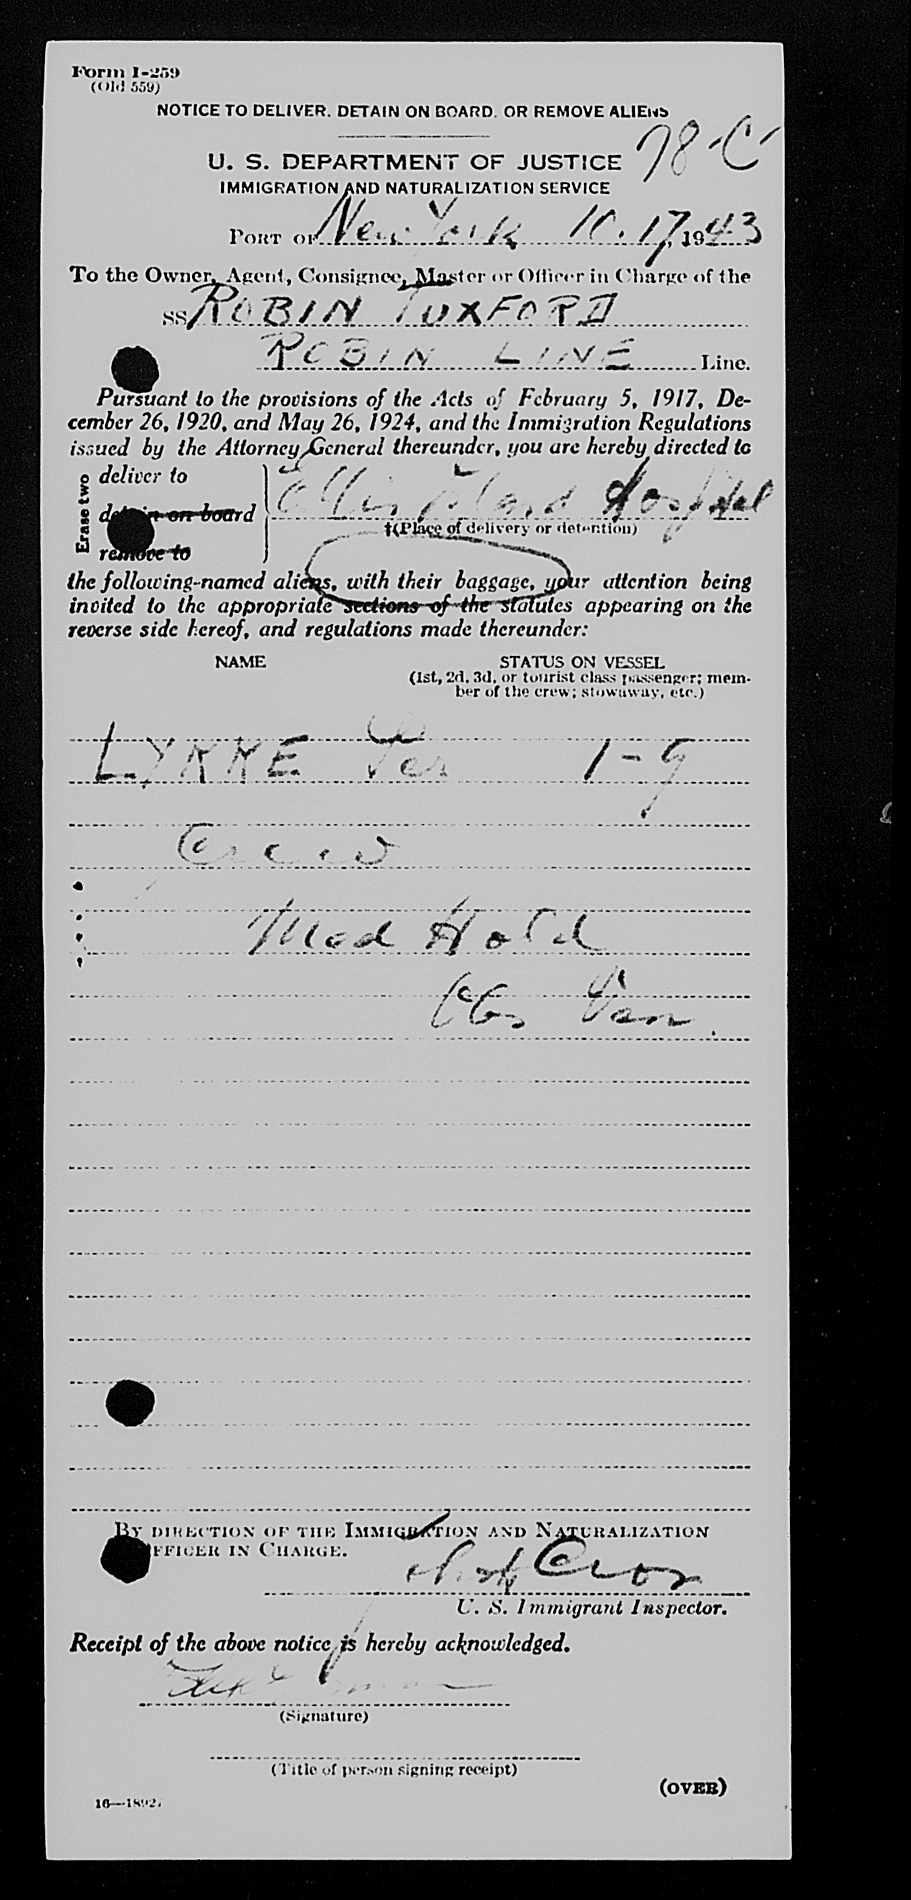 Form I-259
(Old 559)
NOTICE TO DELIVER, DETAIN ON BOARD, OR REMOVE ALIENS
78-C-
U. S. DEPARTMENT OF JUSTICE
IMMIGRATION AND NATURALIZATION SERVICE
PORT OF New York 10.17, 1943
To the Owner, Agent, Consignee, Master or Officer in Charge of the
SS ROBIN TUXFORD
ROBIN LINE Line.
Pursuant to the provisions of the Acts of February 5, 1917, De-
cember 26, 1920, and May 26, 1924, and the Immigration Regulations
issued by the Attorney General thereunder, you are hereby directed to
Erase two
deliver to
detain on board
remove to
Ellis Island Hospital
†(Place of delivery or detention)
the following-named aliens, with their baggage, your attention being
invited to the appropriate sections of the statutes appearing on the
reverse side hereof, and regulations made thereunder:
NAME STATUS ON VESSEL
(1st, 2d, 3d, or tourist class passenger; mem-
ber of the crew; stowaway, etc.)
LYKKE Per 1-9
Crew
Med Hold
Obs Ven.
BY DIRECTION OF THE IMMIGRATION AND NATURALIZATION
OFFICER IN CHARGE.
U. S. Immigrant Inspector.
Receipt of the above notice is hereby acknowledged.
(Signature)
(Title of person signing receipt)
(OVER)